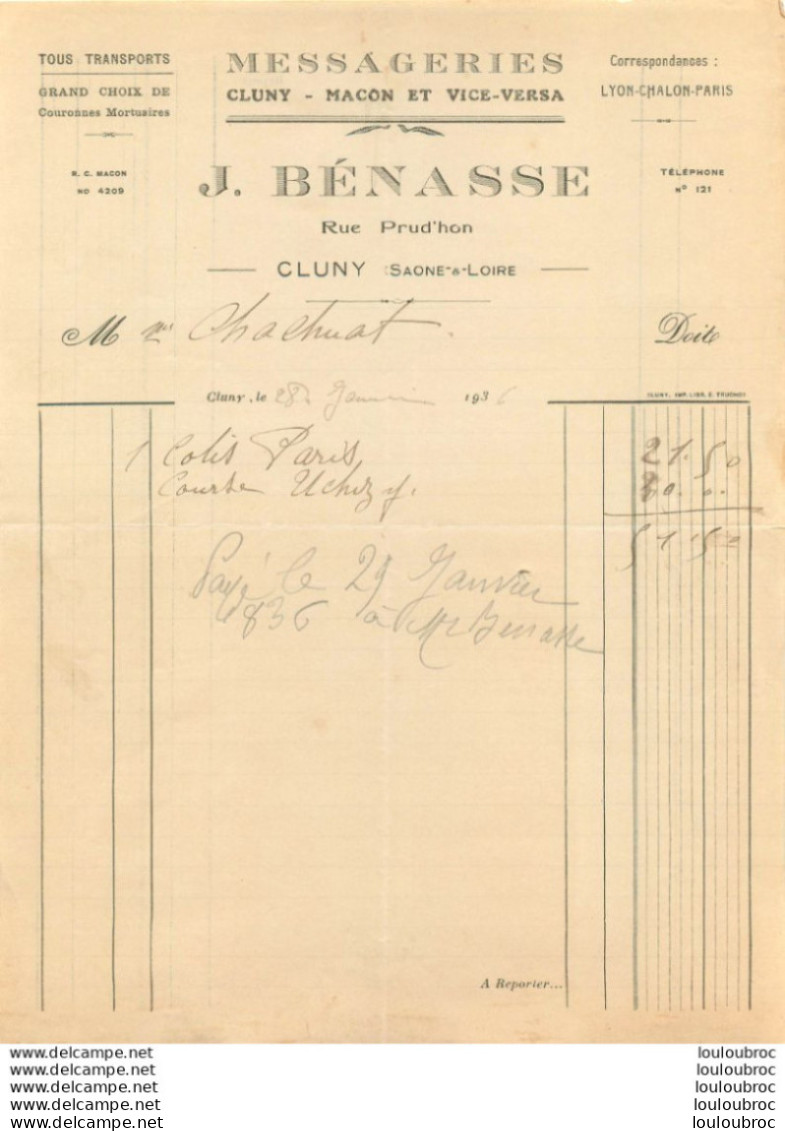 TOUS TRANSPORTS
GRAND CHOIX DE
Couronnes Mortuaires
R. C. MACON
NO 4209
MESSAGERIES
CLUNY - MACON ET VICE-VERSA
Correspondances :
LYON-CHALON-PARIS
J. BÉNASSE
TÉLÉPHONE
N° 121
Rue Prud'hon
CLUNY (SAONE-&-LOIRE
M Chachuat. Doit
Cluny, le 28 Janvier 1936
CLUNY, IMP. LIBR. E. TRUCHOT
1 Colis Paris 21.50
Course Uchizy. 30.0.
51.50
Payé le 29 Janvier
1836 à Mr Benasse
A Reporter...
www.delcampe.net louloubroc
www.delcampe.net louloubroc
www.delcampe.net louloubroc
www.delcampe.net louloubroc
www.delcampe.net louloubroc